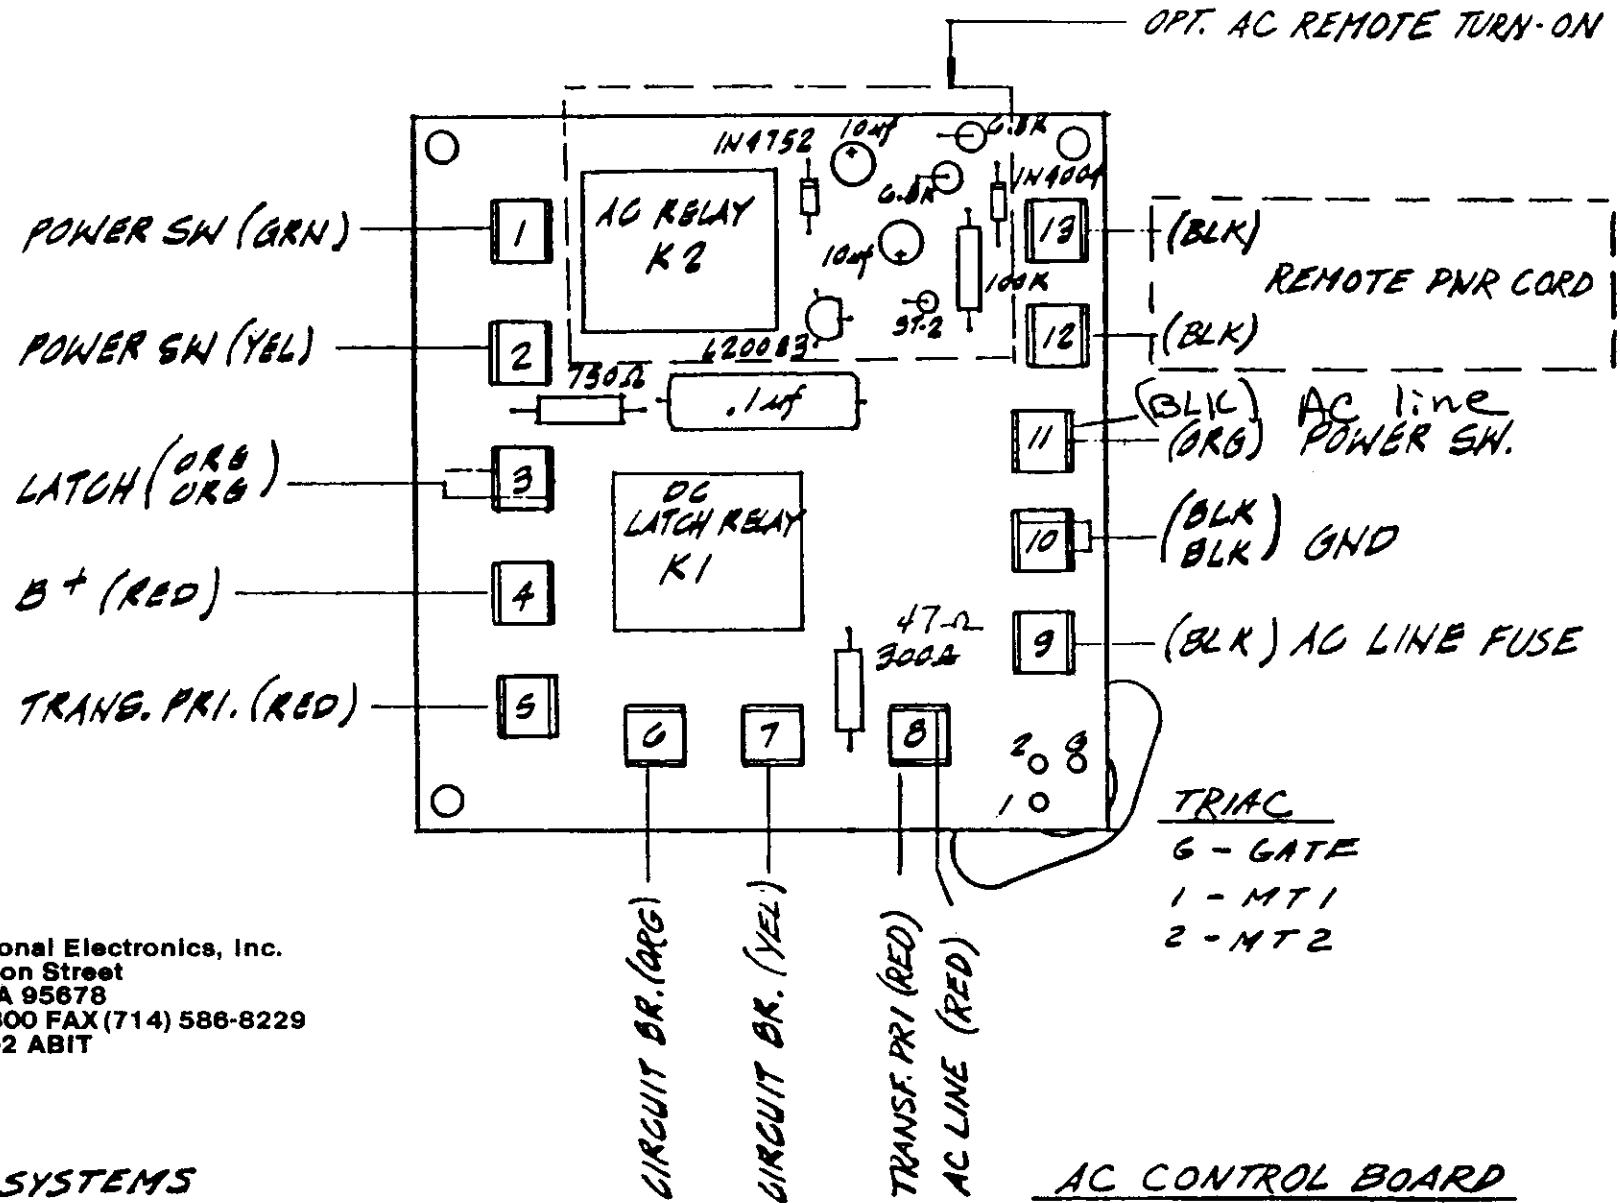 OPT. AC REMOTE TURN-ON
1N4752
10uf
6.8K
6.8K
1N4004
AC RELAY
K2
10uf
100K
ST-2
620083
750Ω
.1uf
POWER SW (GRN)
1
POWER SW (YEL)
2
LATCH (ORG
ORG)
3
B+ (RED)
4
TRANS. PRI. (RED)
5
DC
LATCH RELAY
K1
47Ω
300Ω
6
7
8
13
(BLK)
REMOTE PWR CORD
12
(BLK)
11
(BLK) AC line
(ORG) POWER SW.
10
(BLK
BLK) GND
9
(BLK) AC LINE FUSE
2 G
1
TRIAC
G - GATE
1 - MT1
2 - MT2
CIRCUIT BR. (ORG)
CIRCUIT BR. (YEL)
TRANSF. PRI (RED)
AC LINE (RED)
onal Electronics, Inc.
on Street
A 95678
300 FAX (714) 586-8229
-2 ABIT
SYSTEMS
AC CONTROL BOARD